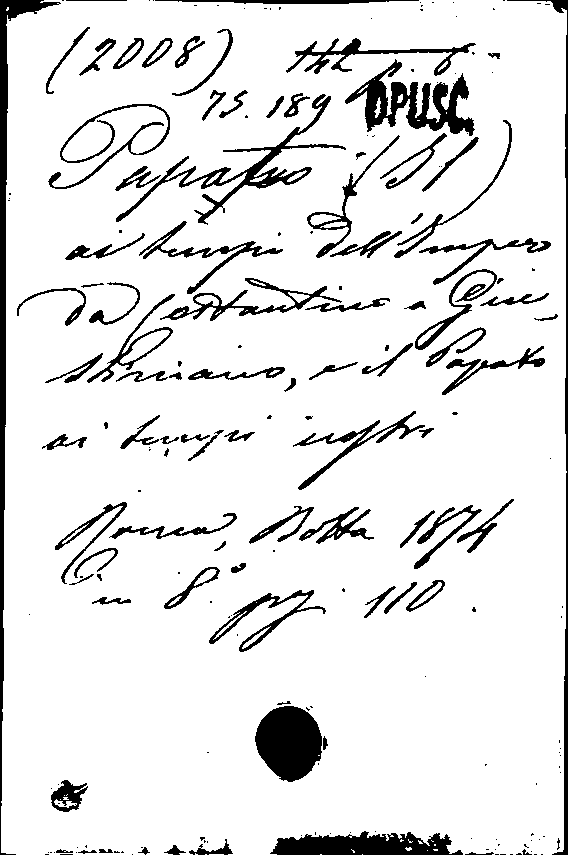 (2008) 142 p. 6
75. 189 OPUSC.
Papato (Il)
ai tempi dell'Impero
da Costantino a Giu-
stiniano, e il Papato
ai tempi nostri
Roma, Botta 1874
in 8.º pg. 110.